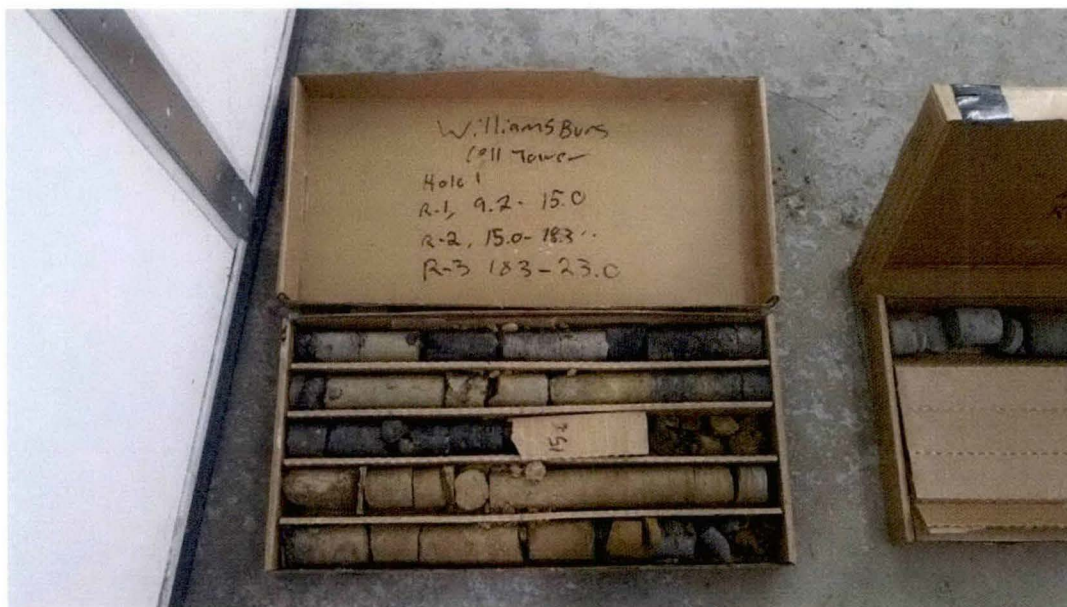 WilliamsBurg
Cell Tower
Hole 1
R-1, 9.2 - 15.0
R-2, 15.0 - 18.3
R-3 18.3 - 23.0
15.0